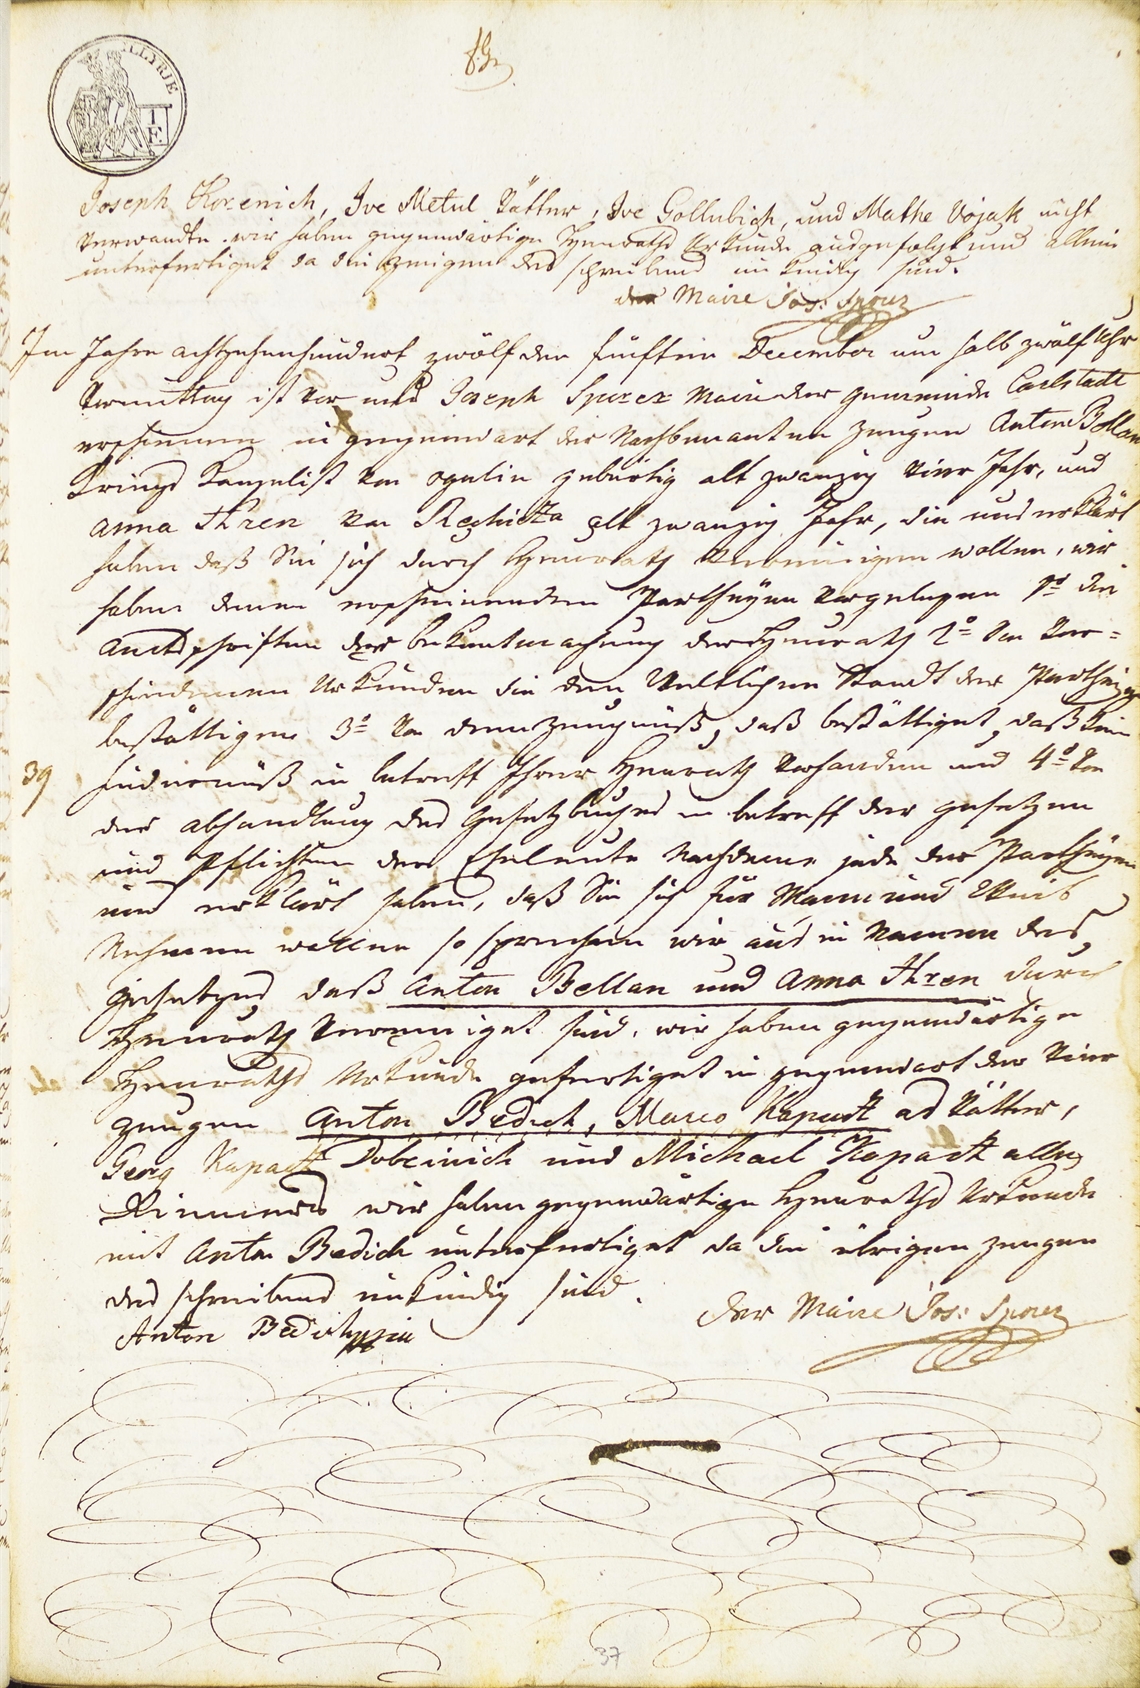 ILLYRIE
T
E
Joseph Korenich, Ive Metul Vätter, Ive Gollubich, und Mathe Vojak nicht
Verwandte. wir haben gegenwärtige Heuraths Urkunde ausgefolgt und allein
unterfertiget da die Zeugen des schreibens unkündig sind.
der Maire Jos: Sporer
Im Jahre achtzehenhundert zwölf den fünften December um halb zwölf Uhr
Vormittag ist vor uns Joseph Sporer Maire der Gemeinde Carlstadt
erschienen in gegenwart der Nachbenanten Zeugen Anton Bellan
Kreuzes Kanzelist von Ogulin gebürtig alt zwanzig vier Jahr, und
Anna Khren von Rechicza alt zwanzig Jahr, die uns erklärt
haben daß Sie sich durch Heurath Vereinigen wollen, wir
haben denen erscheinenden Partheyen Vorgelesen 1º die
Amtsschriften der bekantmachung der Heurath 2º Von Ver=
schiedenen Urkunden die den Weltlichen Standt der Partheyen
bestättigen 3º Von dem Zeugnuß, daß bestättiget, daß kein
39 Hindernuß in betreff Ihrer Heurath Vorhanden und 4º Von
der abhandlung des Gesetzbuches in betreff der gesetzen
und Pflichten der Eheleute Nachdeme jede der Partheyen
uns erklärt haben, daß Sie sich für Mann und Weib
Nehmen wollen so sprechen wir aus in Namen des
Gesetzes daß Anton Bellan und Anna Khren durch
Heurath Vereiniget sind. wir haben gegenwärtige
Heuraths Urkunde gefertiget in gegenwart der Vier
Zeugen Anton Bedich, Marco Kapast ad Vätter,
Georg Kapast Dobrinich und Michael Kapast alle
wir haben gegenwärtige Heuraths Urkunde
mit Anton Bedich unterfertiget da die übrigen Zeugen
des schreibens unkündig sind.
der Maire Jos: Sporer
Anton Bedich
37